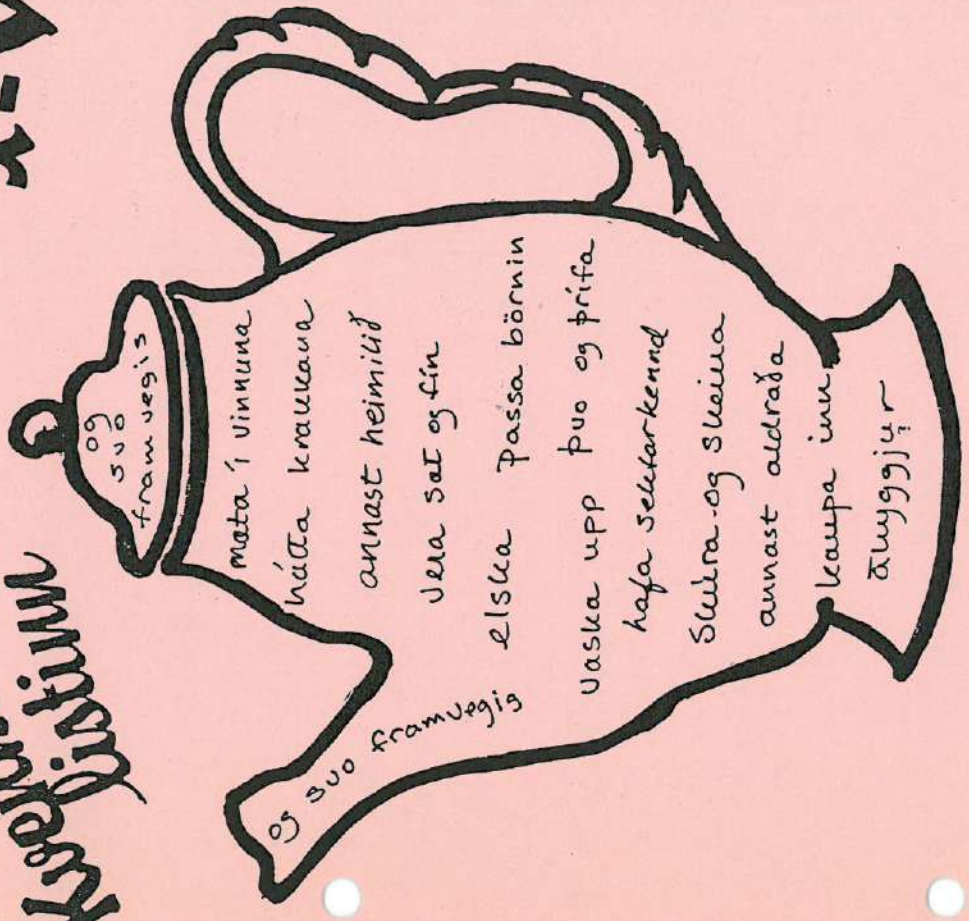 listinn
x-V
og
svo
framvegis
mæta í vinnuna
hátta krakkana
annast heimilið
vera sæt og fín
elska passa börnin
vaska upp þvo og þrífa
hafa sektarkend
Skúra-og skeina
annast aldraða
kaupa inn
áhyggjur
og svo framvegis